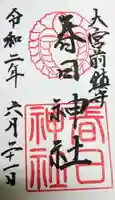 大宮前鎮守
春日神社
令和二年
六月二十一日
春日
神社